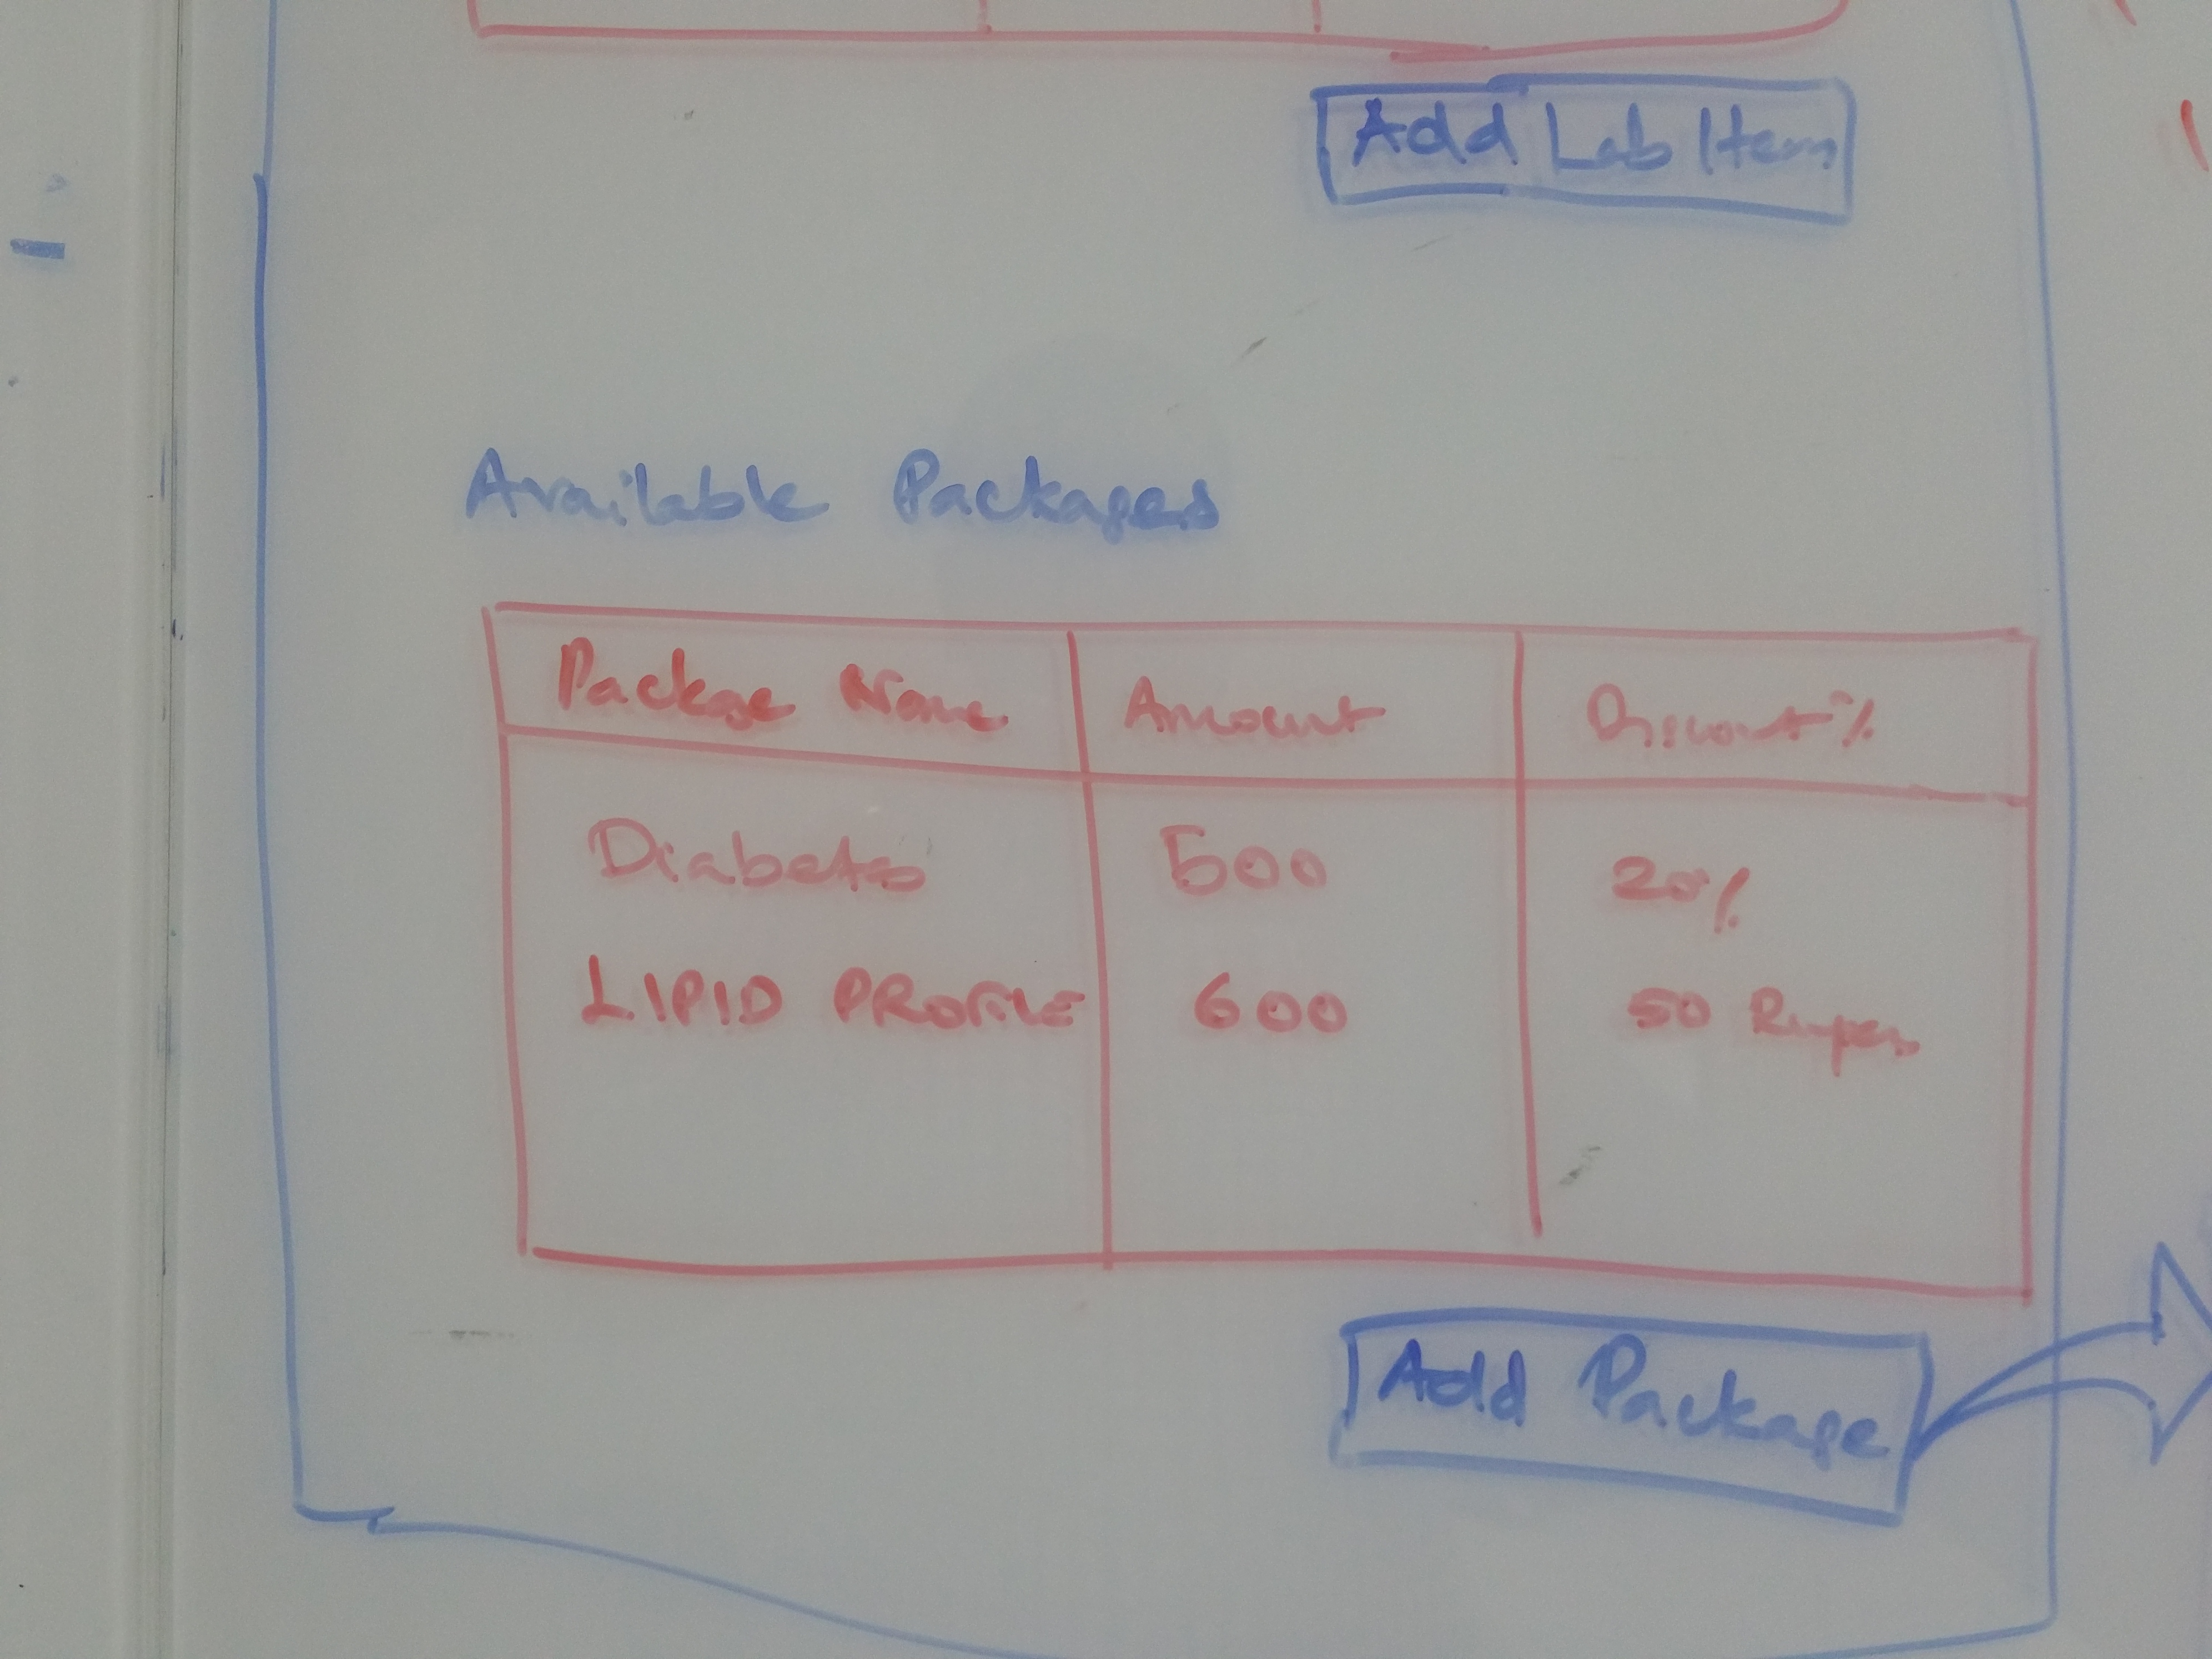 Add Lab Item
Available Packages
Package Name Amount Discount %
Diabetes 500 20%
LIPID PROFILE 600 50 Rupees
Add Package